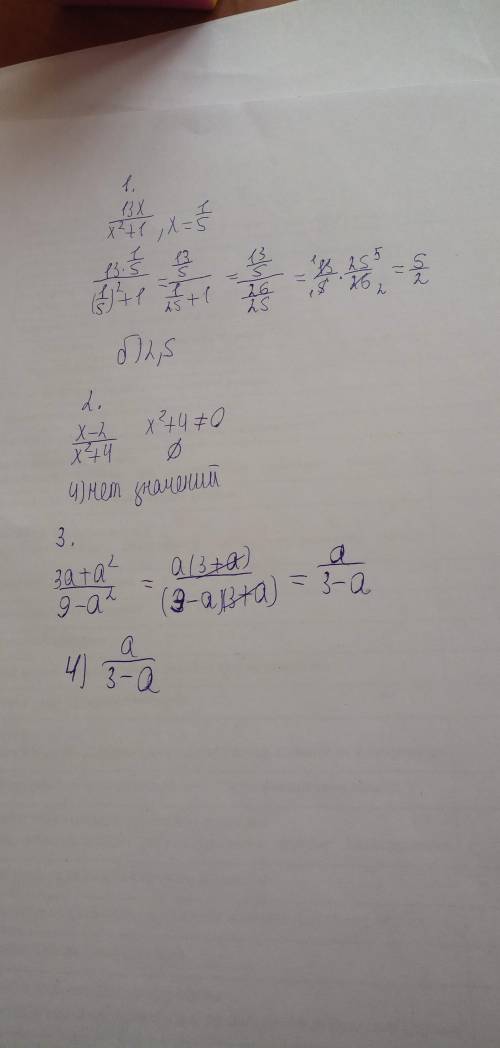 1.
13x/(x²+1), x=1/5
(13·1/5)/((1/5)²+1) = (13/5)/(1/25+1) = (13/5)/(26/25) = 13/5 · 25/26 = 5/2
б) 2,5
2.
(x-2)/(x²+4) x²+4≠0
∅
4) нет значений
3.
(3a+a²)/(9-a²) = a(3+a)/((3-a)(3+a)) = a/(3-a)
4) a/(3-a)